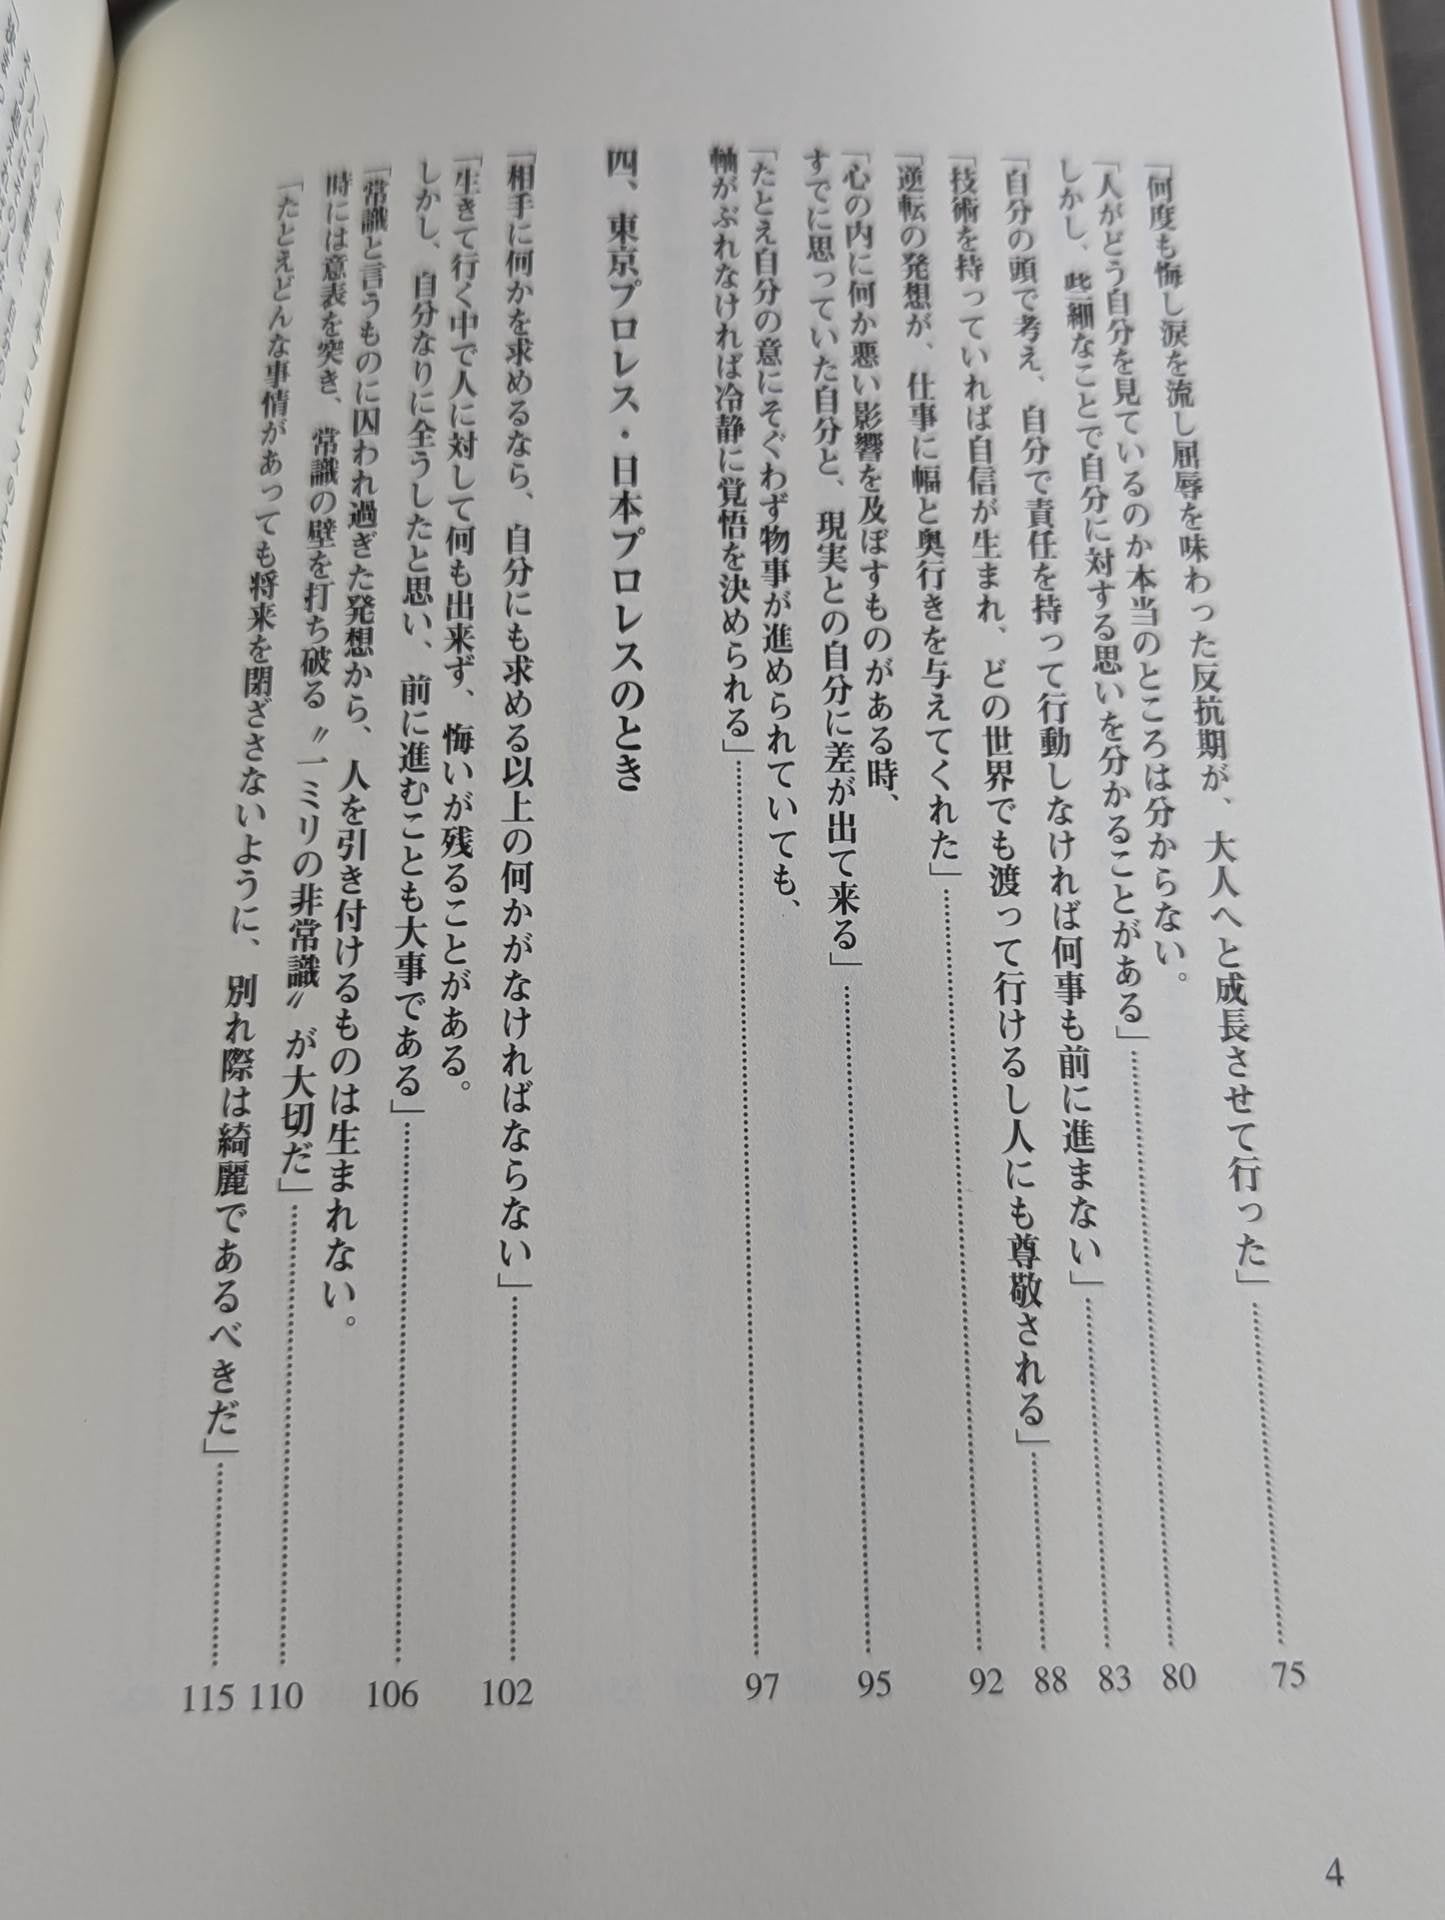 「何度も悔し涙を流し屈辱を味わった反抗期が、大人へと成長させて行った」……75
「人がどう自分を見ているのか本当のところは分からない。
しかし、些細なことで自分に対する思いを分かることがある」……80
「自分の頭で考え、自分で責任を持って行動しなければ何事も前に進まない」……83
「技術を持っていれば自信が生まれ、どの世界でも渡って行けるし人にも尊敬される」……88
「逆転の発想が、仕事に幅と奥行きを与えてくれた」……92
「心の内に何か悪い影響を及ぼすものがある時、
すでに思っていた自分と、現実との自分に差が出て来る」……95
「たとえ自分の意にそぐわず物事が進められていても、
軸がぶれなければ冷静に覚悟を決められる」……97
四、東京プロレス・日本プロレスのとき
「相手に何かを求めるなら、自分にも求める以上の何かがなければならない」……102
「生きて行く中で人に対して何も出来ず、悔いが残ることがある。
しかし、自分なりに全うしたと思い、前に進むことも大事である」……106
「常識と言うものに囚われ過ぎた発想から、人を引き付けるものは生まれない。
時には意表を突き、常識の壁を打ち破る〝一ミリの非常識〟が大切だ」……110
「たとえどんな事情があっても将来を閉ざさないように、別れ際は綺麗であるべきだ」……115
4